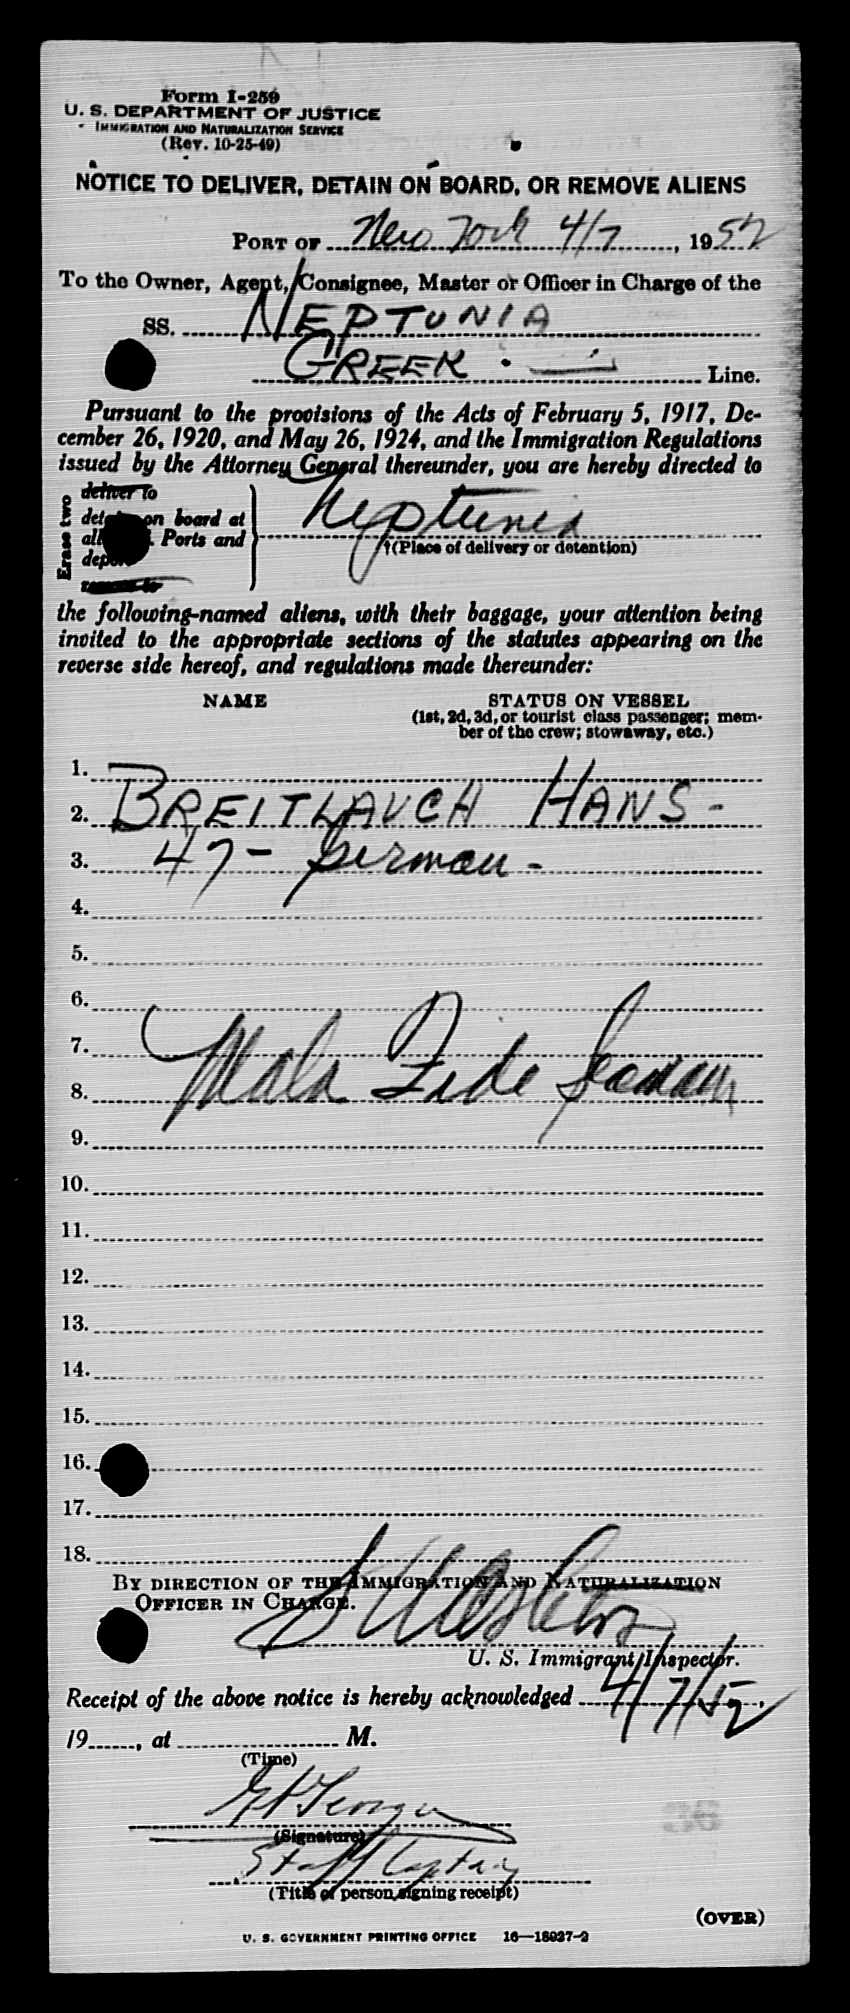 Form I-259
U. S. DEPARTMENT OF JUSTICE
IMMIGRATION AND NATURALIZATION SERVICE
(Rev. 10-25-49)
NOTICE TO DELIVER, DETAIN ON BOARD, OR REMOVE ALIENS
PORT OF New York 4/7, 1952
To the Owner, Agent, Consignee, Master or Officer in Charge of the
SS. NEPTUNIA
GREEK - Line.
Pursuant to the provisions of the Acts of February 5, 1917, De-
cember 26, 1920, and May 26, 1924, and the Immigration Regulations
issued by the Attorney General thereunder, you are hereby directed to
Erase two
deliver to
on board at
all Ports and
Neptunia
†(Place of delivery or detention)
remove to
the following-named aliens, with their baggage, your attention being
invited to the appropriate sections of the statutes appearing on the
reverse side hereof, and regulations made thereunder:
NAME STATUS ON VESSEL
(1st, 2d, 3d, or tourist class passenger; mem-
ber of the crew; stowaway, etc.)
1.
2. BREITLAUCH HANS -
3. 47 - German -
4.
5.
6.
7.
8. Mala Fide Seaman
9.
10.
11.
12.
13.
14.
15.
16.
17.
18.
BY DIRECTION OF THE IMMIGRATION AND NATURALIZATION
OFFICER IN CHARGE.
U. S. Immigrant Inspector.
Receipt of the above notice is hereby acknowledged 4/7/52,
19, at M.
(Time)
(Signature)
Staff Captain
(Title of person signing receipt)
(OVER)
U. S. GOVERNMENT PRINTING OFFICE 16—18937-2